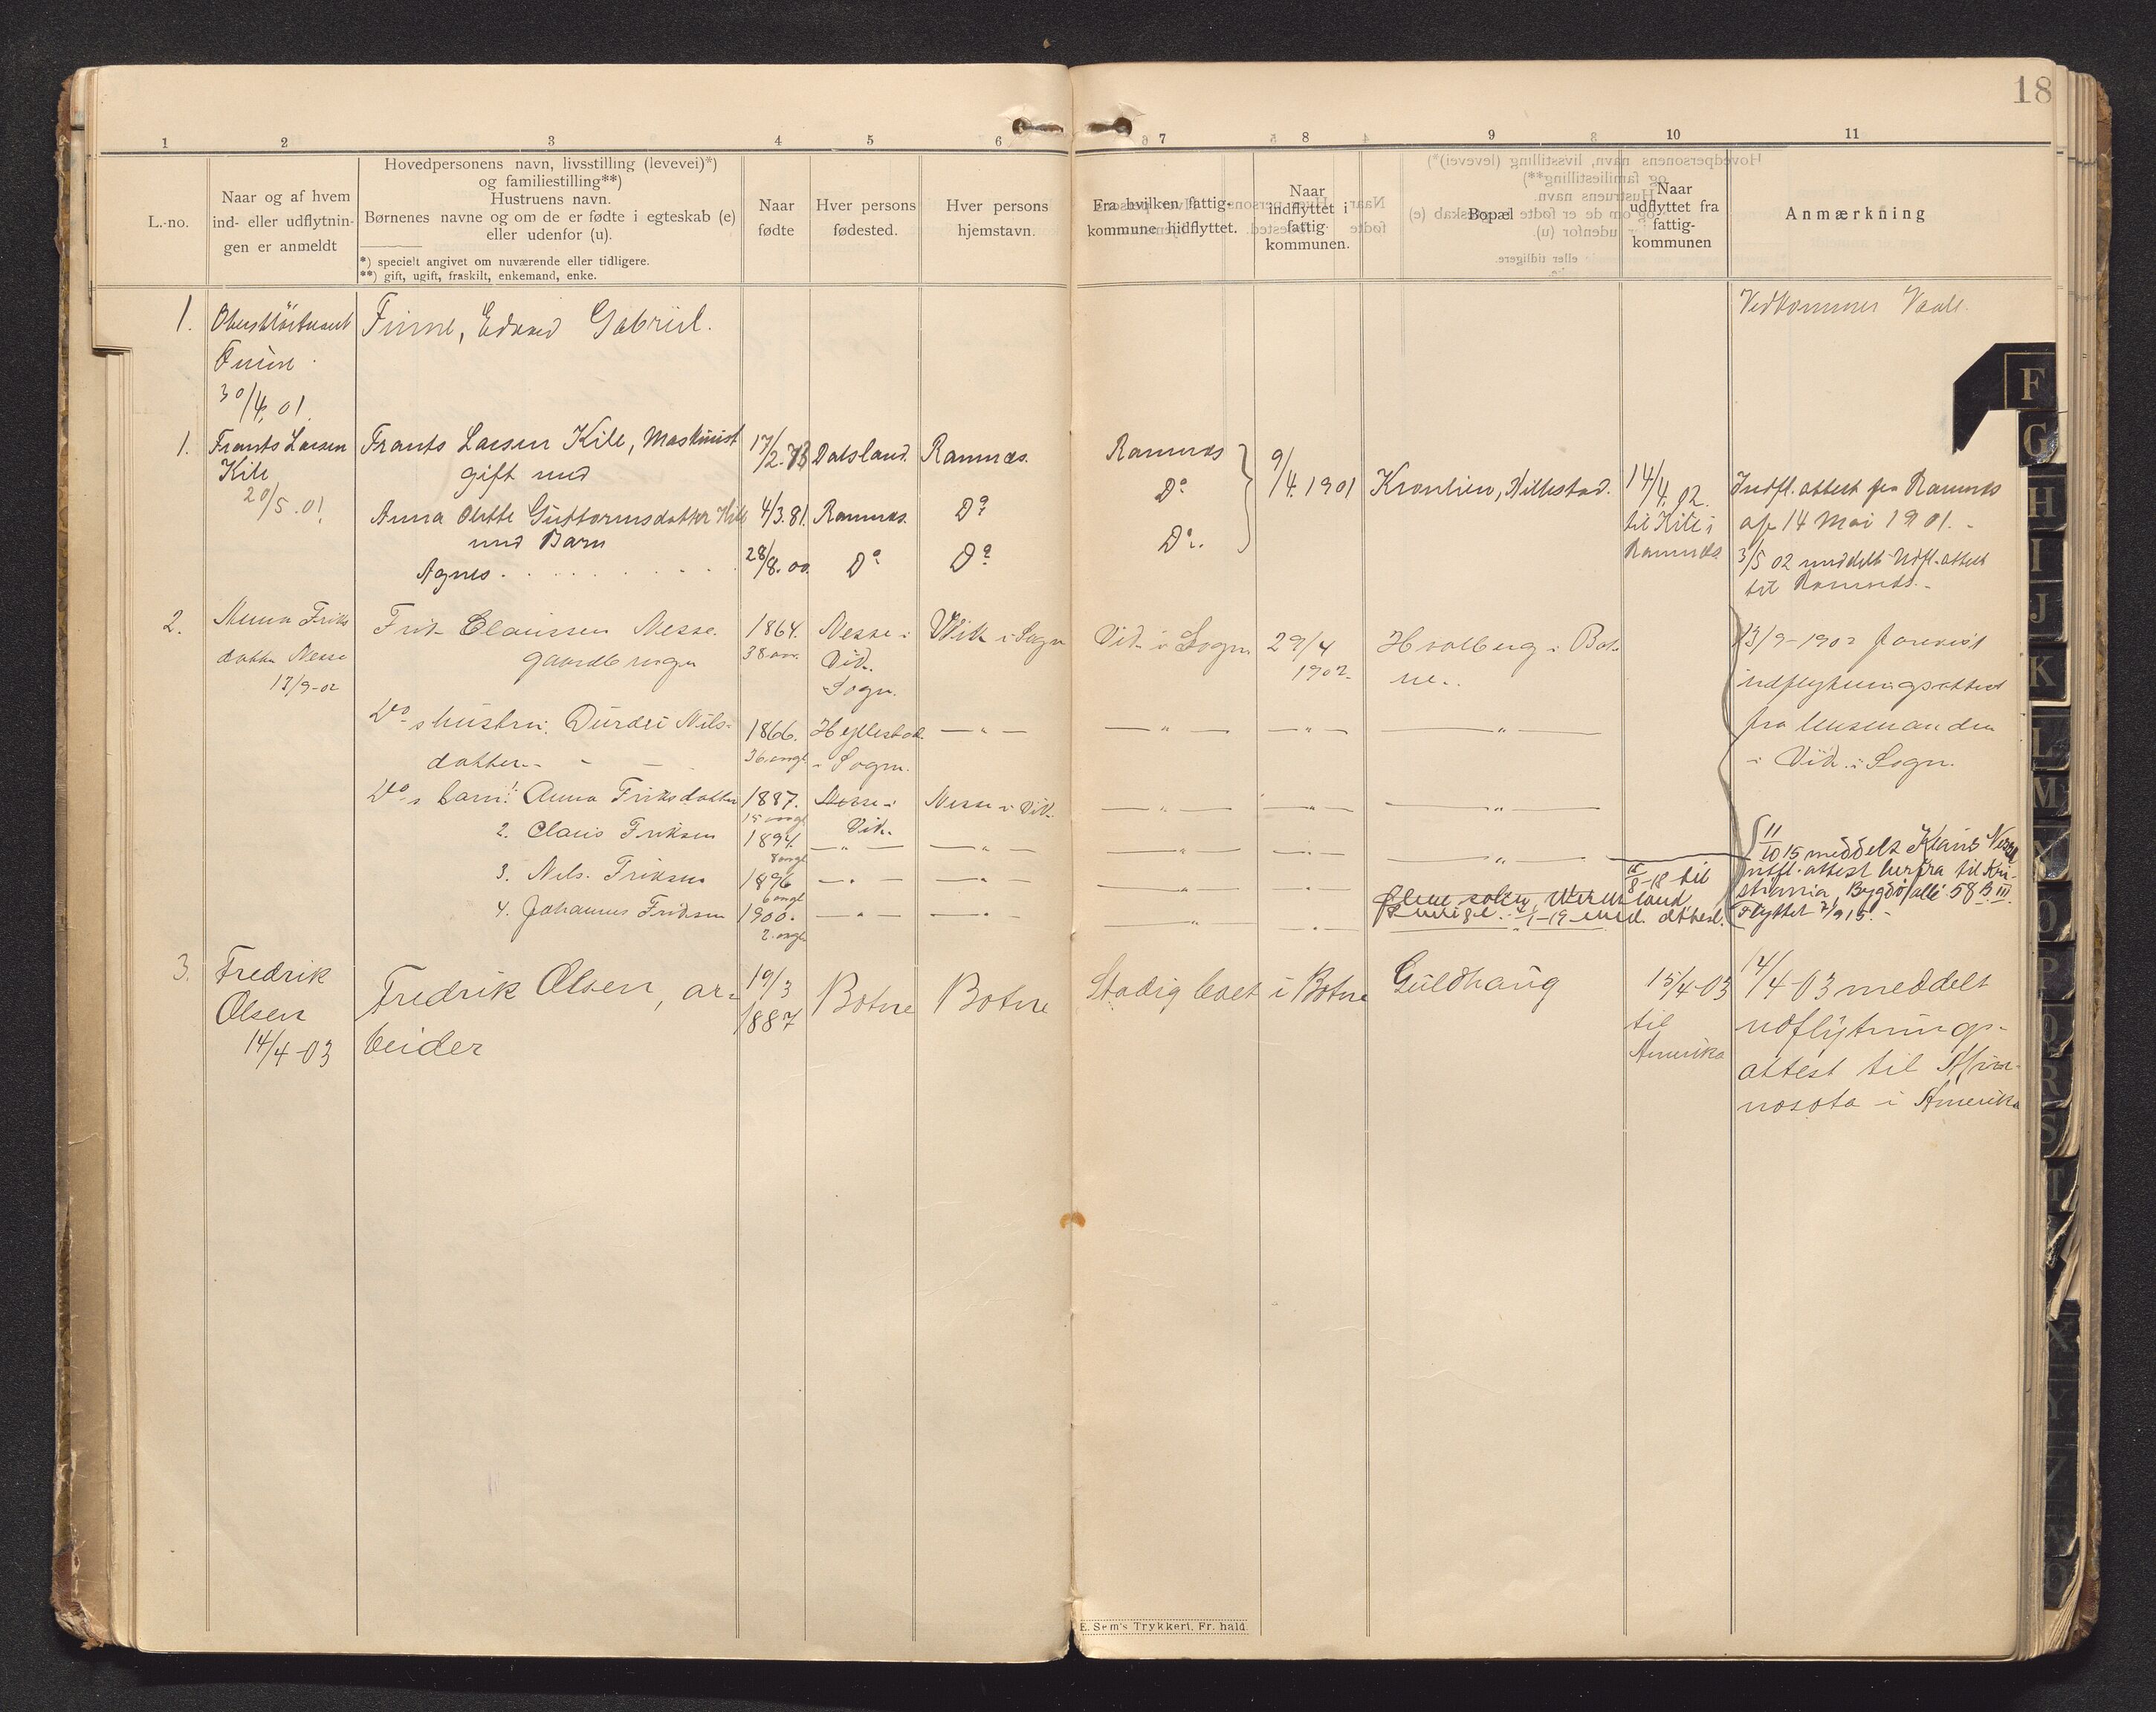 18
1 2 3 4 5 6 7 8 9 10 11
L.-no.
Naar og af hvem
ind- eller udflytnin-
gen er anmeldt
Hovedpersonens navn, livsstilling (levevei)*)
og familiestilling**)
Hustruens navn.
Børnenes navne og om de er fødte i egteskab (e)
eller udenfor (u).
*) specielt angivet om nuværende eller tidligere.
**) gift, ugift, fraskilt, enkemand, enke.
Naar
fødte
Hver persons
fødested.
Hver persons
hjemstavn.
Fra hvilken fattig-
kommune hidflyttet.
Naar
indflyttet i
fattig-
kommunen.
Bopæl
Naar
udflyttet fra
fattig-
kommunen
Anmærkning
1.
30/4. 01
Finne, Edvard Gabriel.
Vedkommer Vaale.
1.
Frants Larsen
Kile
20/5. 01.
Frants Larsen Kile, Maskinist
gift med
17/2. 73
Dalsland.
Ramnæs.
Anna Olette Guttormsdatter Kile
4/3. 81.
Ramnæs.
Do
med Barn
Agnes
28/8. 00.
Do
Do
Ramnæs
Do
Do.
9/4. 1901
Kronlien, Hillestad.
14/4. 02.
til Kile i
Ramnæs
Indfl. attest fra Ramnæs
af 14 Mai 1901.
3/5 02 meddelt Udfl. attest
til Ramnæs.
2.
Friks
datter Nesse
13/9-02
Frik Claussen Nesse.
gaardbruger
1864.
38 aar.
Nesse i
Vik.
Sogn.
Vik i Sogn
Vik i Sogn
29/4
1902.
Hvalberg i Bot-
ne.
13/9-1902 forevist
indflytningsattest
fra lensmanden
i Vik i Sogn.
Do s hustru: Durdei Nils-
datter
1866.
36
i Sogn.
— " —
— " —
— " —
— " —
Do s barn: 1. Anna Friksdatter
1887.
15
Nesse i
Vik.
Nesse i Vik.
— " —
— " —
— " —
2. Claus Friksen
1894.
8
— " —
— " —
— " —
— " —
— " —
3. Nils Friksen
1896
6
— " —
— " —
— " —
— " —
4. Johannes Friksen
1900.
2
— " —
— " —
— " —
— " —
8-18 til
1-19 med attest.
11/10 15 meddelt Klaus Nesse
udfl. attest herfra til Kri-
stiania, Bygdø allé 58 B III.
Flyttet 7/9 15.
3.
Fredrik
Olsen
14/4-03
Fredrik Olsen, ar-
beider
19/3
1887
Botne
Botne
Stadig boet i Botne
Guldhaug
15/4-03
til
Amerika
14/4-03 meddelt
udflytnings-
attest til Min-
nosota i Amerika
E. Sem's Trykkeri, Fr. hald.
F
G
H
I
J
K
L
M
O
P
Q
R
S
T
X
Y
Z